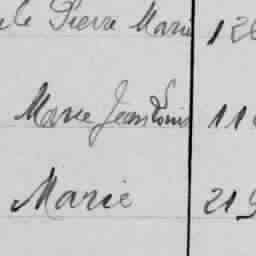 le Pierre Marie 126
Marie Jean Louis 11
Marie 219